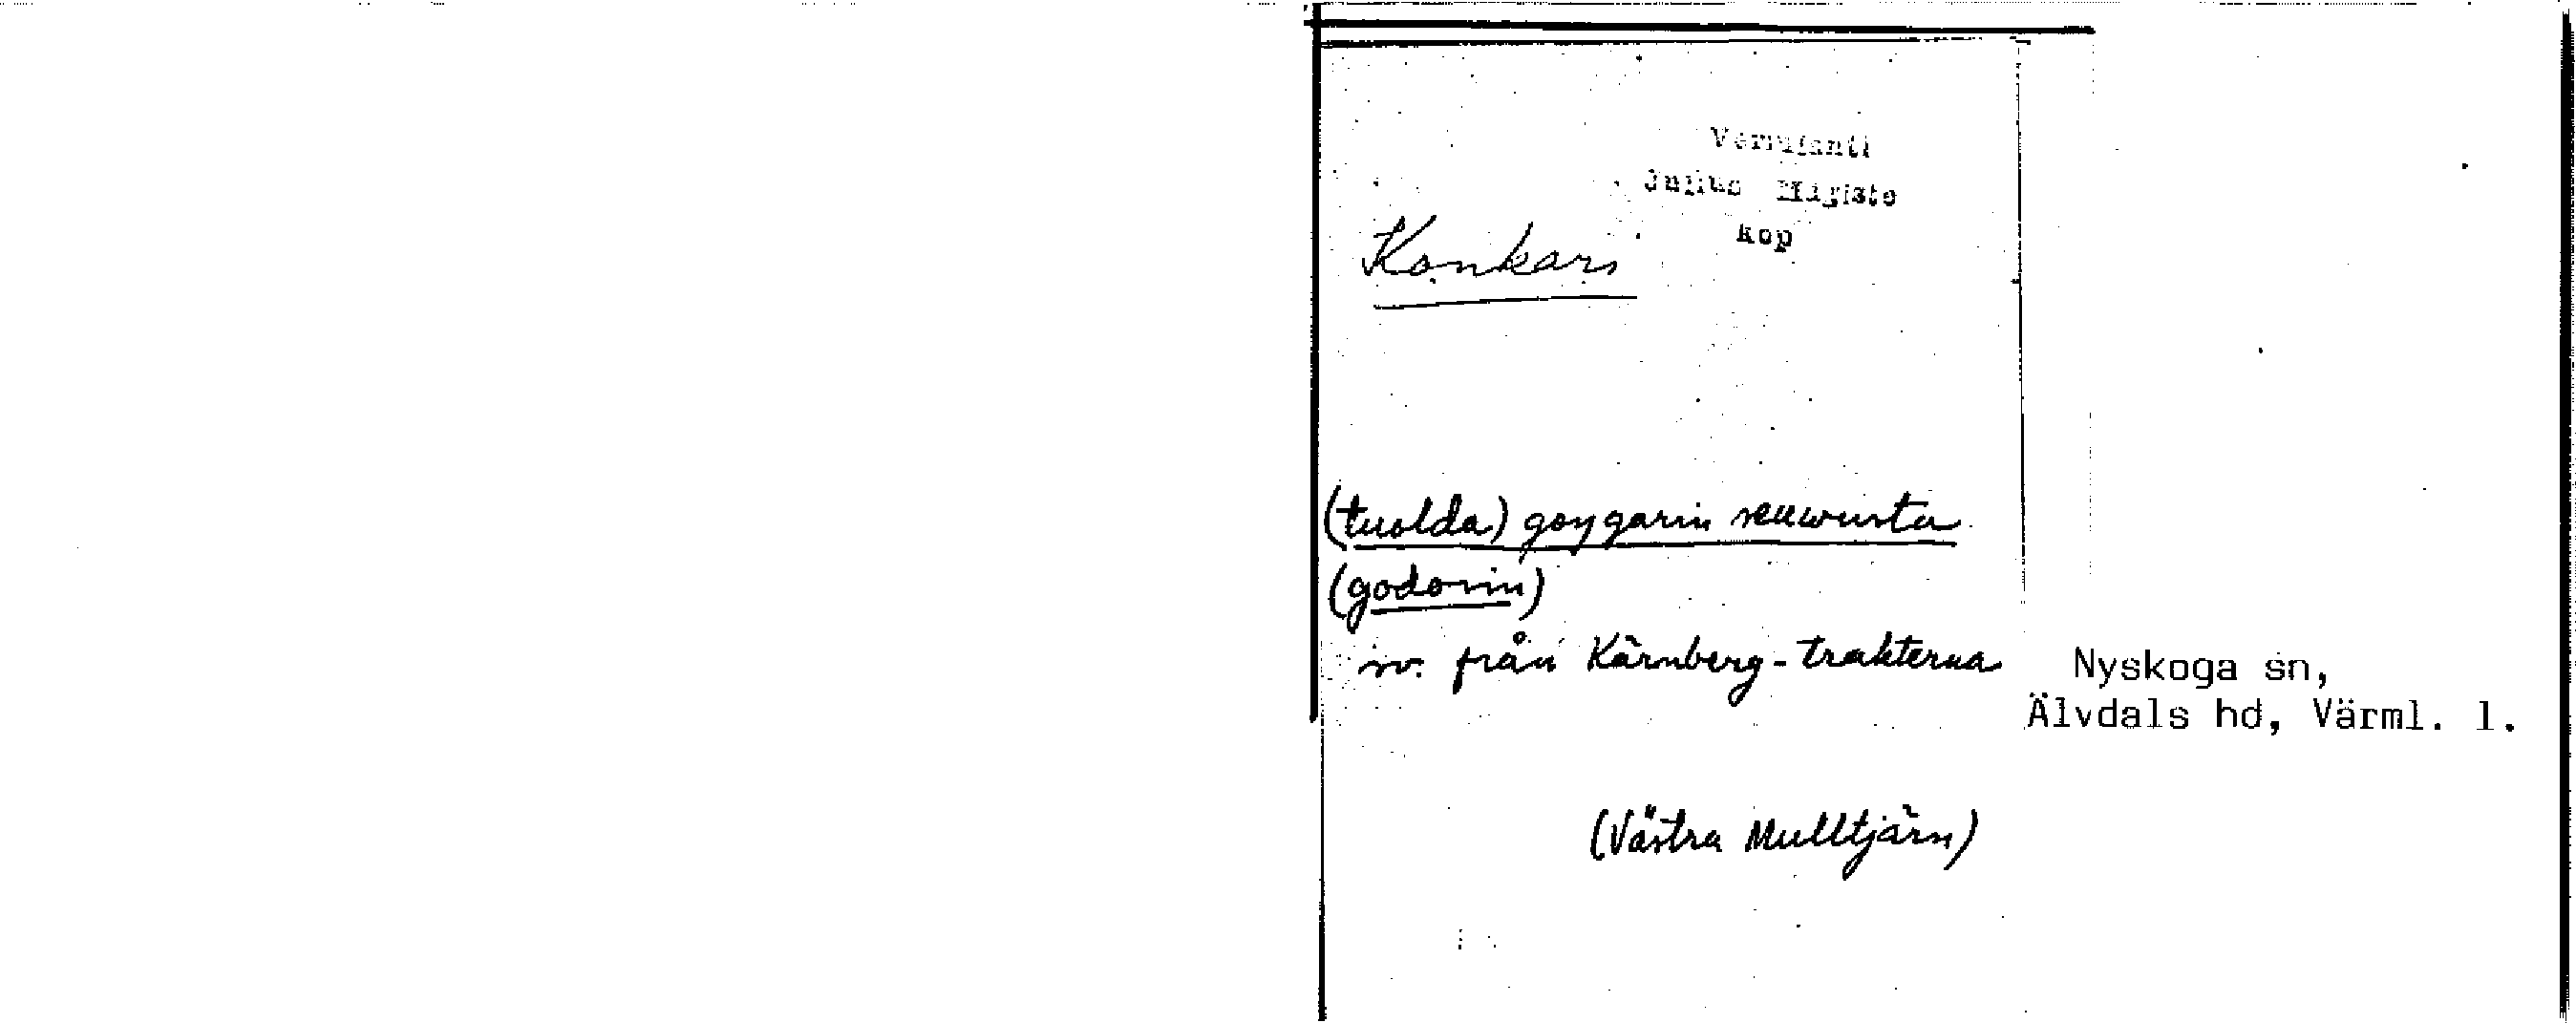 Värmlanti
Julius Mägiste
kop
Konkars
(tuolda) goŋgarin seuwusta
(godorin)
sv. från Kärnberg-trakterna
Nyskoga sn,
Älvdals hd, Värml. l.
(Västra Mulltjärn)